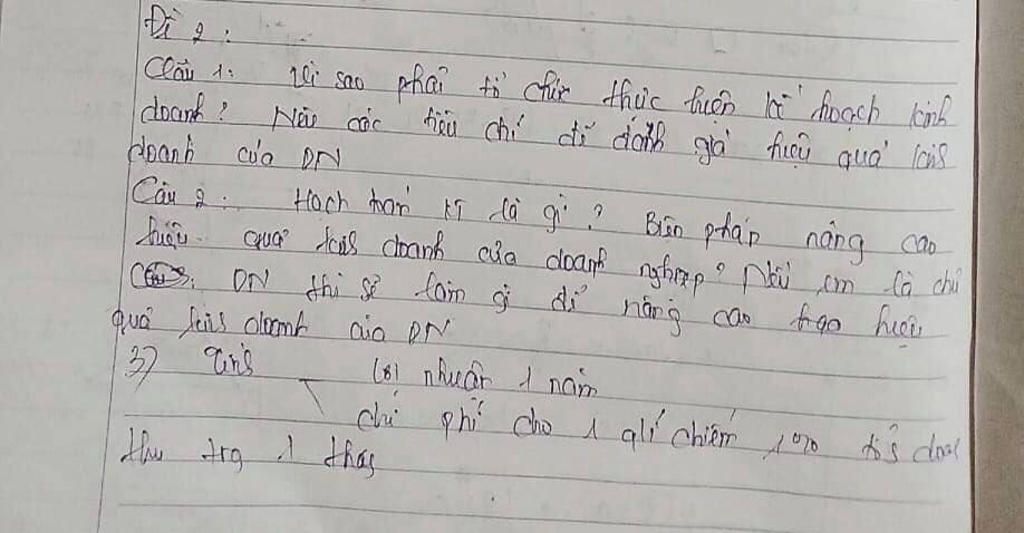 Đề 2:
Câu 1: Vì sao phải tổ chức thực hiện kế hoạch kinh
doanh? Nêu các tiêu chí để đánh giá hiệu quả kinh
doanh của DN
Câu 2: Hạch toán KT là gì? Biện pháp nâng cao
hiệu quả kinh doanh của doanh nghiệp? Nếu em là chủ
DN thì sẽ làm gì để nâng cao hiệu
quả kinh doanh của DN
3) Tính lợi nhuận 1 năm
chi phí cho 1 chiếm 1% doanh
thu trg 1 tháng